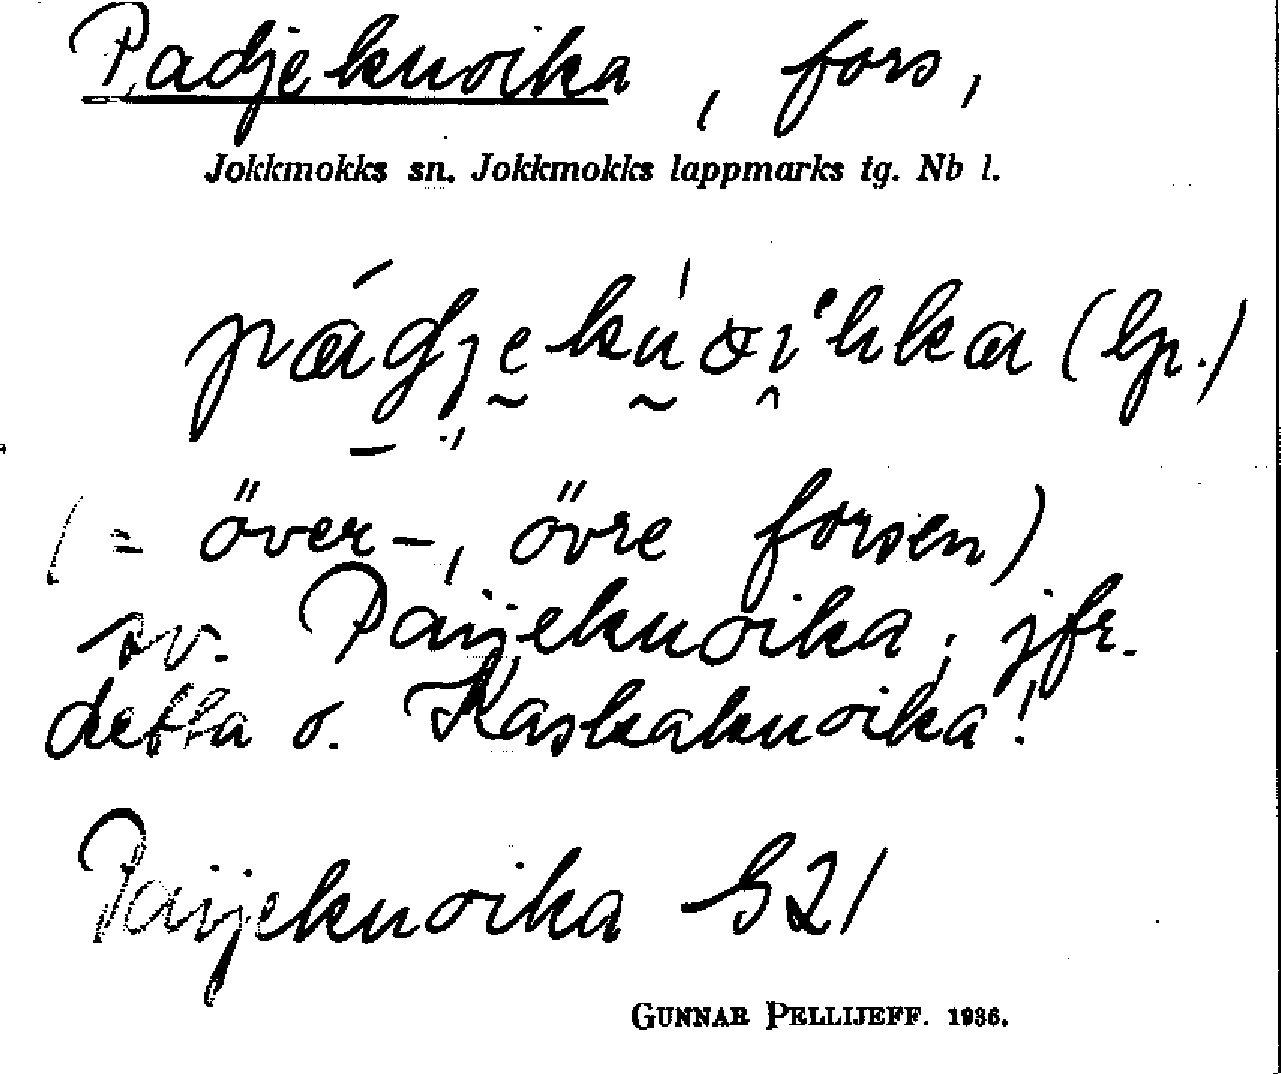 Padjekuoika, fors,
Jokkmokks sn. Jokkmokks lappmarks tg. Nb l.
(lp.)
(= över-, övre forsen)
sv. Paijekuoika; jfr.
detta o. Kaskakuoika!
Paijekuoika S21
GUNNAR PELLIJEFF. 1936.